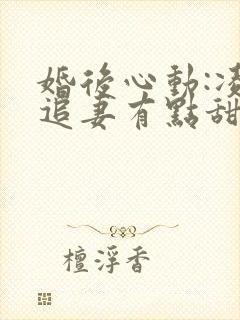 婚後心動:凌
追妻有點甜
檀浮香